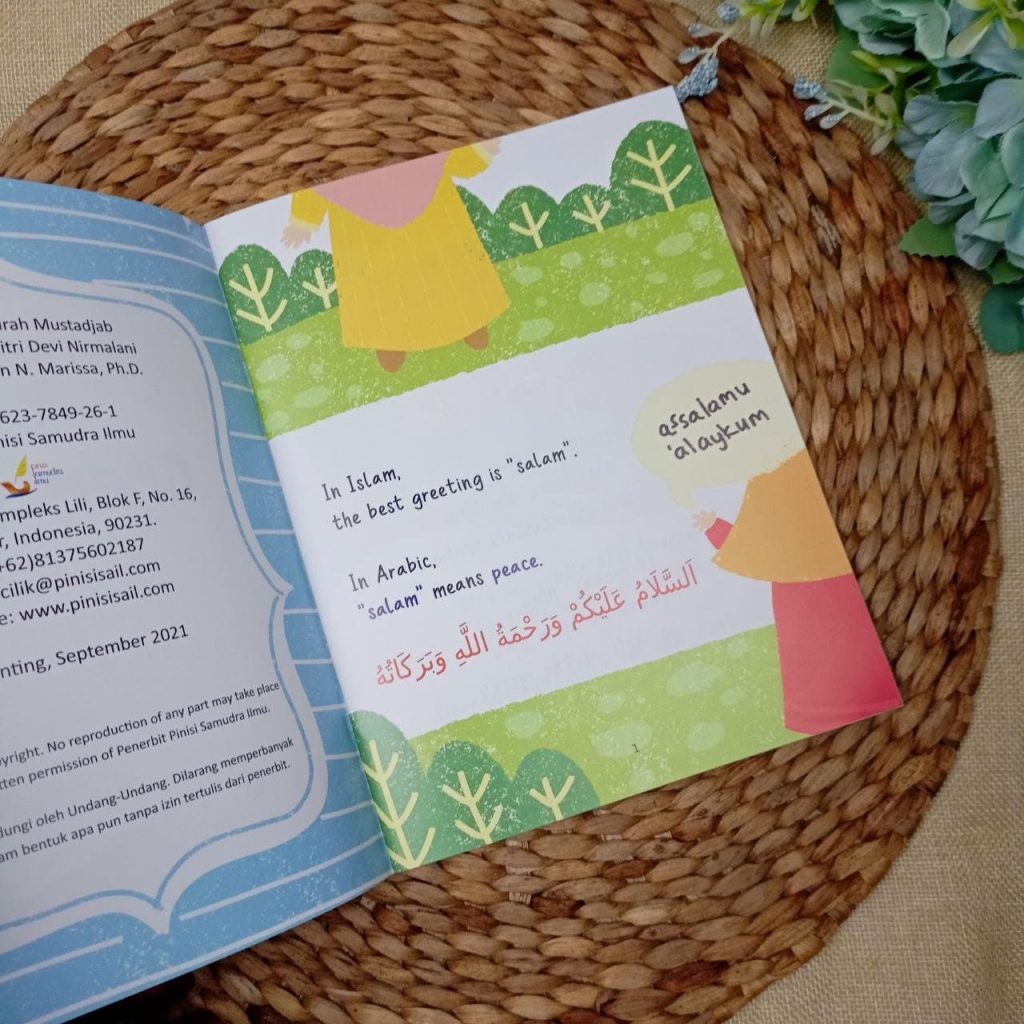 Mustadjab
Devi Nirmalani
N. Marissa, Ph.D.
623-7849-26-1
Samudra Ilmu
pinisi
samudra
ilmu
Lili, Blok F, No. 16,
Indonesia, 90231.
+62)81375602187
cilik@pinisisail.com
www.pinisisail.com
September 2021
No reproduction of any part may take place
permission of Penerbit Pinisi Samudra Ilmu.
oleh Undang-Undang. Dilarang memperbanyak
bentuk apa pun tanpa izin tertulis dari penerbit.
assalamu
'alaykum
In Islam,
the best greeting is "salam".
In Arabic,
"salam" means peace.
اَلسَّلَامُ عَلَيْكُمْ وَرَحْمَةُ اللَّهِ وَبَرَكَاتُهُ
1